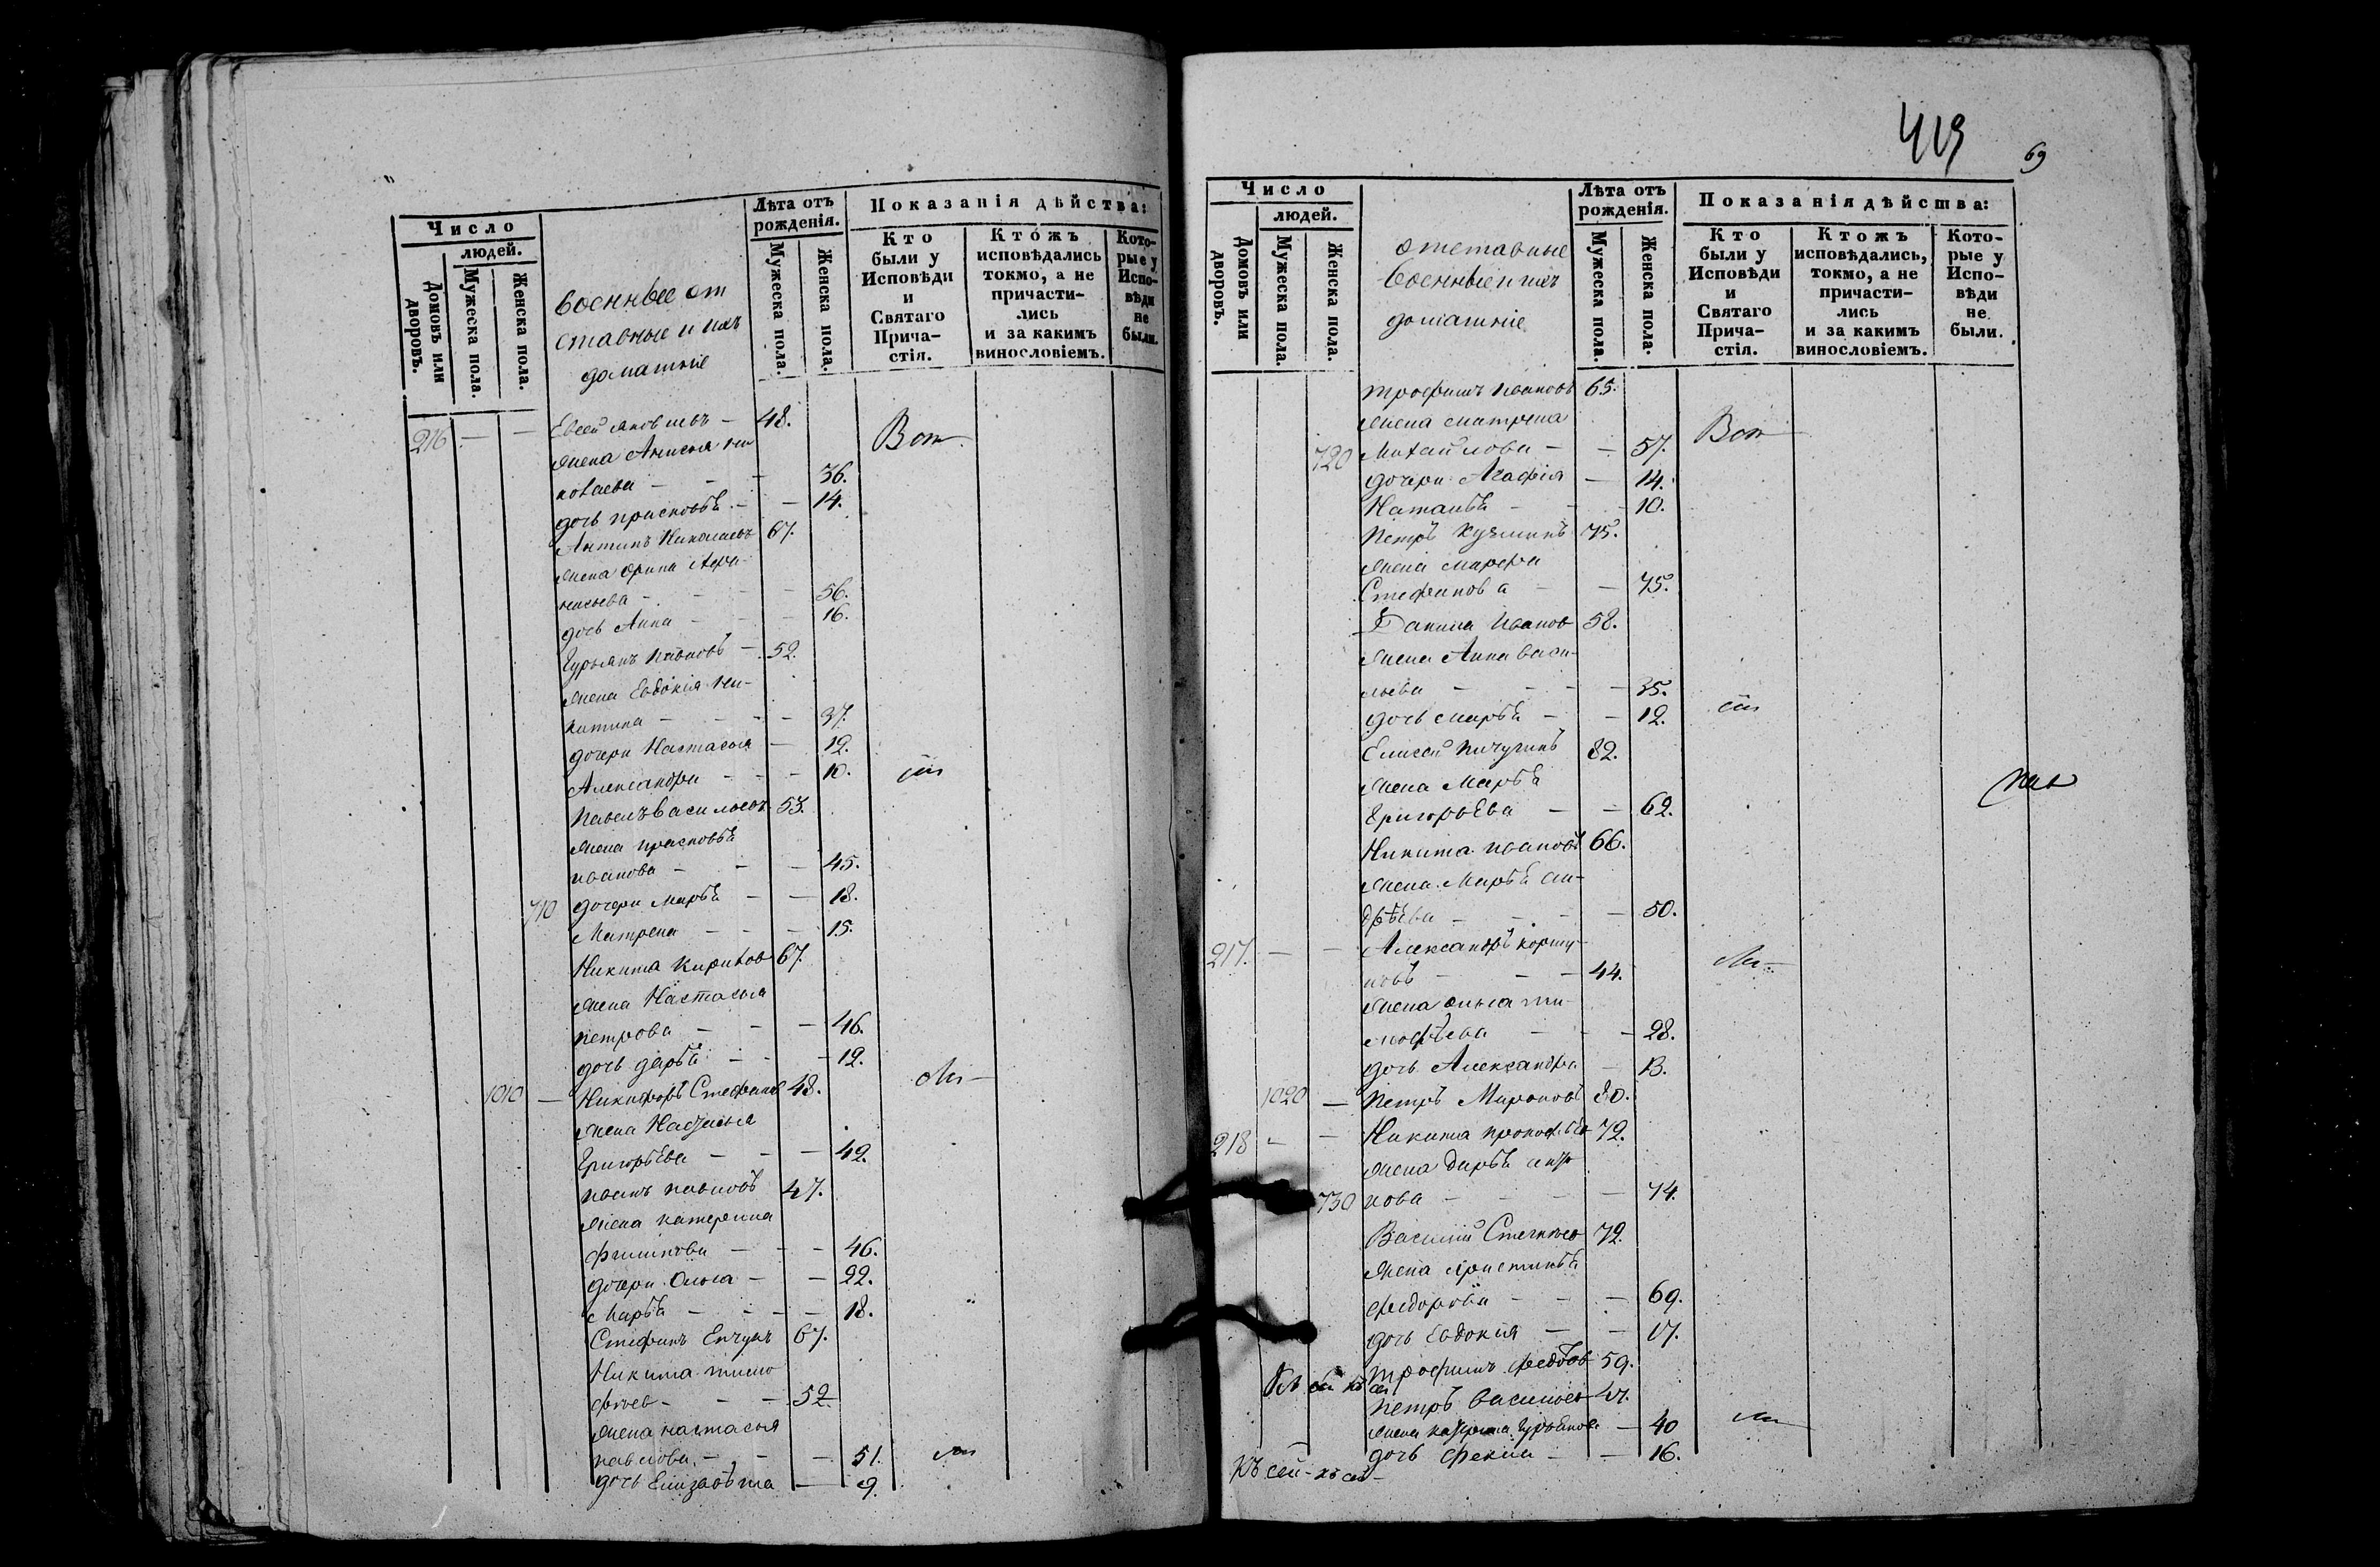 Число
людей.
Домовъ или дворовъ.
Мужеска пола.
Женска пола.
военные от
ставные и ихъ
домашніе
Лѣта отъ
рожденія.
Мужеска пола.
Женска пола.
Показанія дѣйства:
Кто
были у
Исповѣди
и
Святаго
Прича-
стія.
Ктожъ
исповѣдались
токмо, а не
причасти-
лись
и за какимъ
винословіемъ.
Кото-
рые у
Испо-
вѣди
не
были.
216 — — Евсей Яковлевъ — 48.
жена Анисья ни
колаева — — — 36.
дочь Прасковья — — 14.
Антипъ Николаевъ 67.
жена Орина Афа-
насьева — — — 56.
дочь Анна — — 16.
Гурьянъ Павловъ — 52.
жена Евдокія ни-
китина — — — 37.
дочери Настасья — 12.
Александра — — 10.
Павелъ васильевъ 53.
жена прасковья
иванова — — — 45.
710 дочери Марья — — 18.
Матрена — — — 15.
Никита Кирилов 67.
жена Настасья
петрова — — — 46.
дочь дарья — — 12.
1010 — Никифоръ Стефанов 48.
жена Настасья
Григорьева — — — 42.
иванъ павловъ 47.
жена катерина
филипова — — — 46.
дочери Ольга — — 22.
Марья — — — 18.
Стефанъ 67.
Никита тимо
фѣев — — — 52.
жена настасья
павлова — — 51.
дочь Елизавѣта — 9.
419
69
Число
людей.
Домовъ или дворовъ.
Мужеска пола.
Женска пола.
отставные
военные и ихъ
домашніе
Лѣта отъ
рожденія.
Мужеска пола.
Женска пола.
Показанія дѣйства:
Кто
были у
Исповѣди
и
Святаго
Прича-
стія.
Ктожъ
исповѣдались,
токмо, а не
причасти-
лись
и за какимъ
винословіемъ.
Кото-
рые у
Испо-
вѣди
не
были.
трофимъ Ивановъ 65.
жена матрена
720 Михайлова — — 57.
дочери Агафія — 14.
Наталья — — 10.
Петръ Кузминъ 75.
жена марфа
Стефанова — — 75.
Данила Иванов 58.
жена Анна васи-
льева — — — 35.
дочь марья — — 12.
Елисей Пичугинъ 82.
жена Марья
Григорьева — — 62.
Никита ивановъ 66.
жена Марья ан-
дрѣева — — — 50.
217. — — Александръ коршу-
новъ — — — 44.
жена ольга ти-
мофѣева — — — 28.
дочь Александра — 13.
1020 — Петръ Мироновъ 80.
218 — — Никита прокофьев 72.
жена дарья
730 нова — — — 74.
Василий 72.
жена
федорова — — — 69.
дочь Евдокія — — 17.
трофимъ федотов 59.
петръ васильев 47.
жена катерина гурьянова — 40
дочь фекла — — 16.